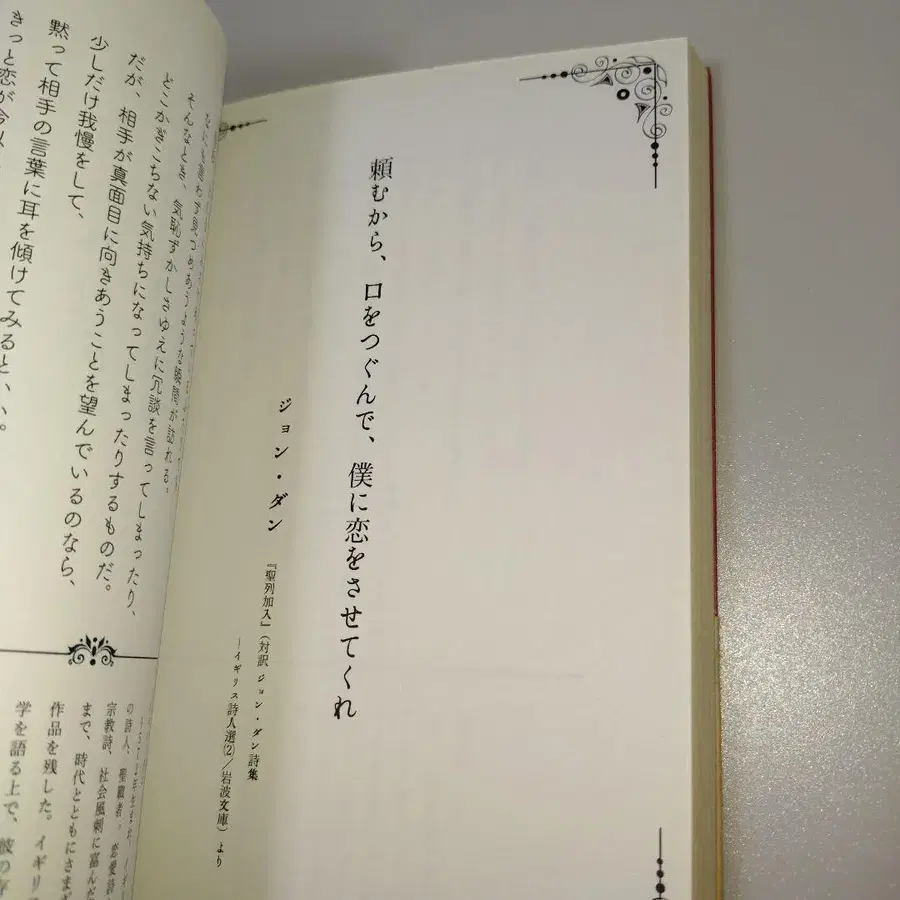 頼むから、口をつぐんで、僕に恋をさせてくれ
ジョン・ダン
『聖列加入』(対訳 ジョン・ダン詩集
―イギリス詩人選(2)/岩波文庫)より
そんなとき、気恥ずかしさゆえに冗談を言ってしまったり、
どこかぎこちない気持ちになってしまったりするものだ。
だが、相手が真面目に向きあうことを望んでいるのなら、
少しだけ我慢をして、
黙って相手の言葉に耳を傾けてみるといい。
きっと恋が今以
の詩人、聖職者。恋愛詩
宗教詩、社会風刺に富んだ
まで、時代とともにさまざ
作品を残した。イギリス
学を語る上で、彼の存